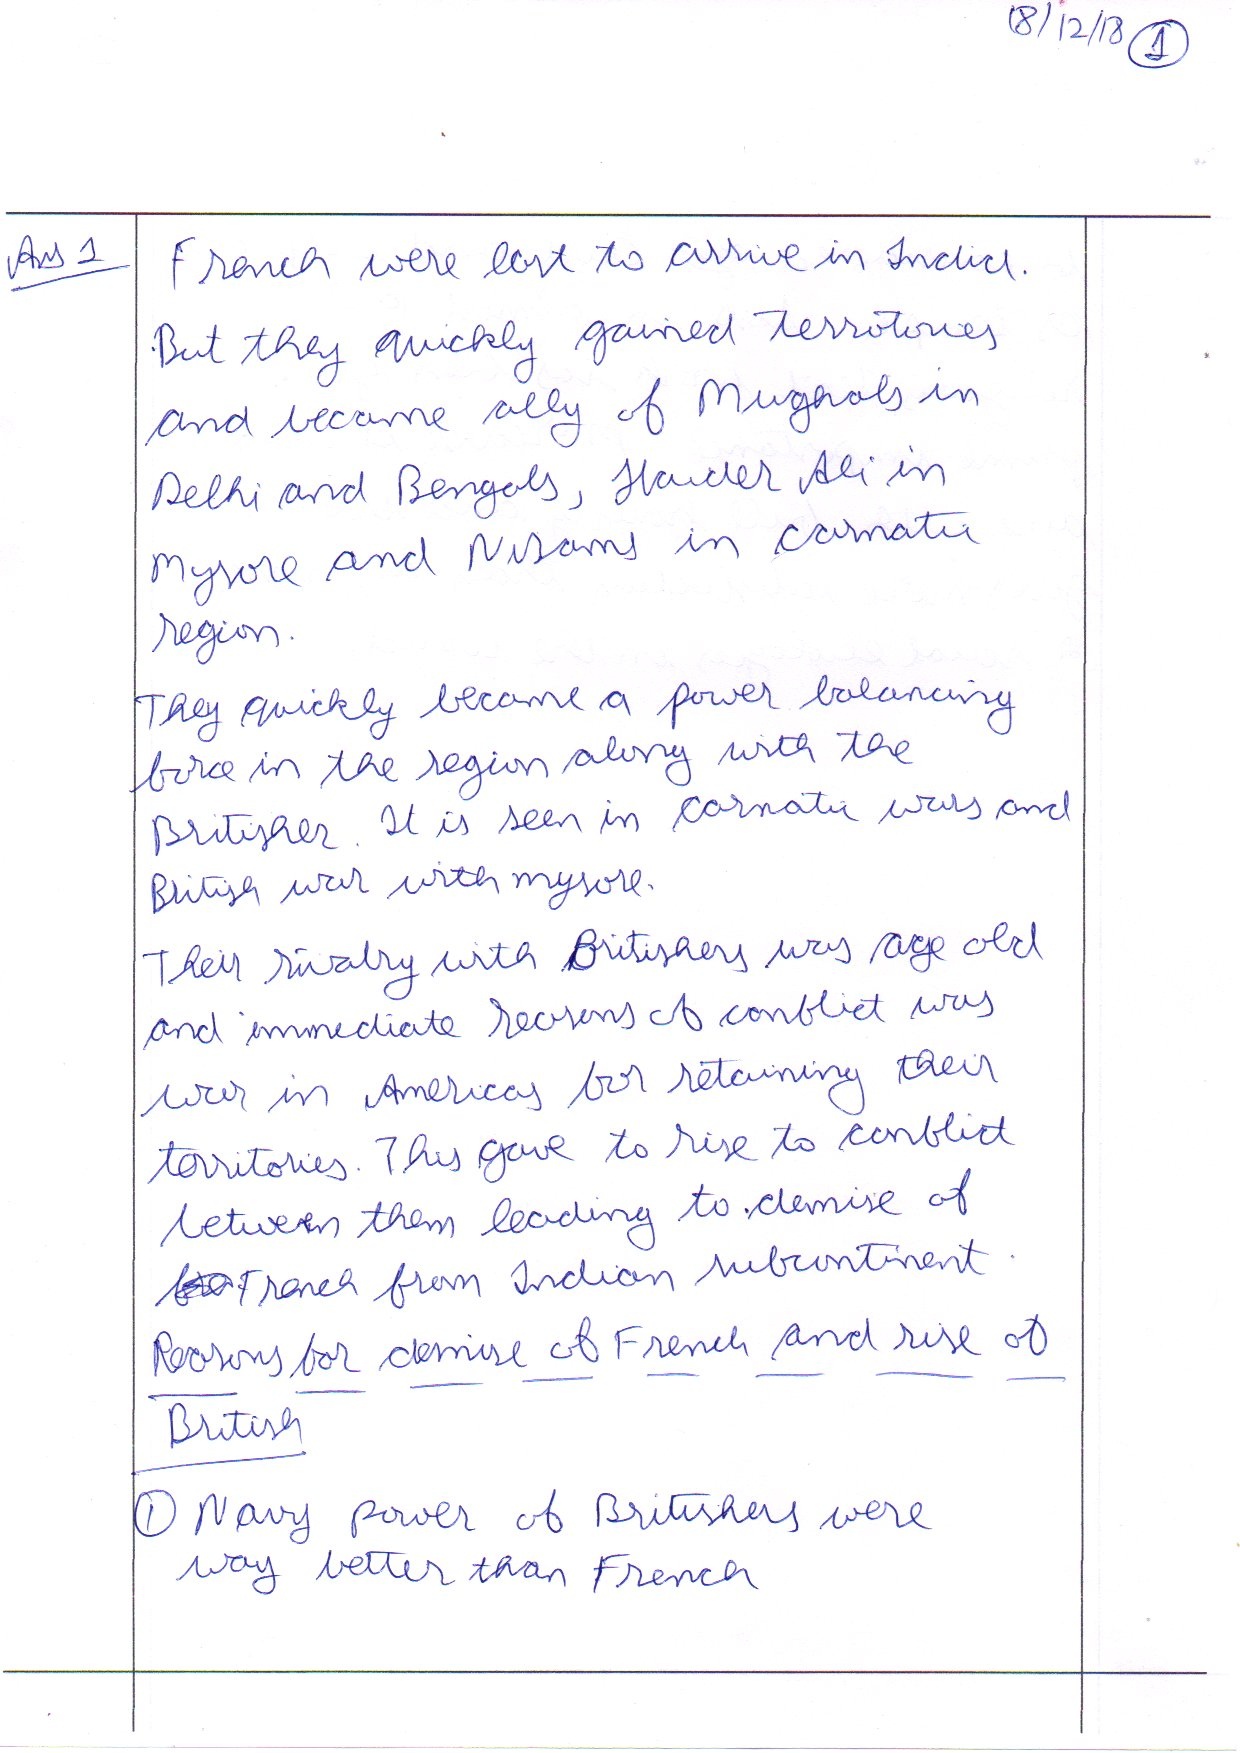 18/12/18 1
Ans 1
French were last to arrive in India.
But they quickly gained territories
and became ally of Mughals in
Delhi and Bengals, Haider Ali in
Mysore and Nizams in carnatic
region.
They quickly became a power balancing
force in the region along with the
Britisher. It is seen in carnatic wars and
British war with mysore.
Their rivalry with Britishers was age old
and immediate reasons of conflict was
war in Americas for retaining their
territories. This gave to rise to conflict
between them leading to demise of
French from Indian subcontinent.
Reasons for demise of French and rise of
British
① Navy power of Britishers were
way better than French